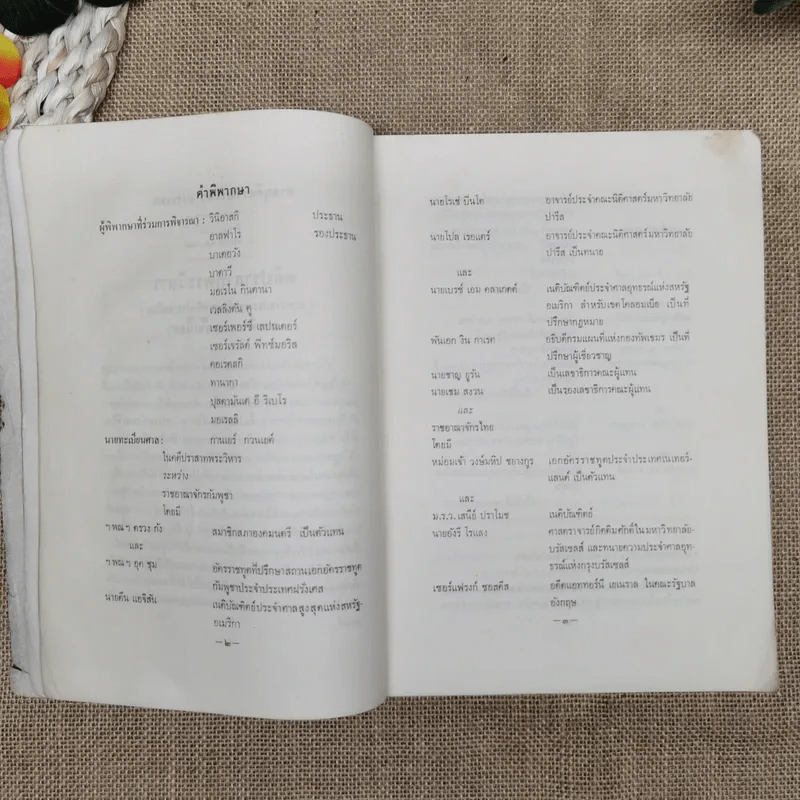 คำพิพากษา
ผู้พิพากษาที่ร่วมการพิจารณา : วินิอาสกี ประธาน
อาลฟาโร รองประธาน
บาเดอวัง
บาดาวี
มอเรโน กินตานา
เวลลิงตัน คู
เซอร์เพอร์ซี่ เสปนเดอร์
เซอร์เจรัลด์ ฟิทซ์มอริส
คอเรตสกี
ทานากา
บุสตามันเต อี ริเบโร
มอเรลลี
นายทะเบียนศาล : กานเยร์ กวนเยต์
ในคดีปราสาทพระวิหาร
ระหว่าง
ราชอาณาจักรกัมพูชา
โดยมี
ฯพณฯ ตรวง กัง สมาชิกสภาองคมนตรี เป็นตัวแทน
และ
ฯพณฯ อุค ชุม อัครราชทูตที่ปรึกษาสถานเอกอัครราชทูต
กัมพูชาประจำประเทศฝรั่งเศส
นายดีน แอจิสัน เนติบัณฑิตย์ประจำศาลสูงสุดแห่งสหรัฐ-
อเมริกา
—๒—
นายโรเช่ ปินโต อาจารย์ประจำคณะนิติศาสตร์มหาวิทยาลัย
ปารีส
นายโปล เรอแตร์ อาจารย์ประจำคณะนิติศาสตร์มหาวิทยาลัย
ปารีส เป็นทนาย
และ
นายเบรซ์ เอม คลาเกตต์ เนติบัณฑิตย์ประจำศาลอุทธรณ์แห่งสหรัฐ
อเมริกา สำหรับเขตโคลอมเบีย เป็นที่
ปรึกษากฎหมาย
พันเอก งิน กาเรต อธิบดีกรมแผนที่แห่งกองทัพเขมร เป็นที่
ปรึกษาผู้เชี่ยวชาญ
นายชาญ ยูรัน เป็นเลขาธิการคณะผู้แทน
นายเขม สงวน เป็นรองเลขาธิการคณะผู้แทน
และ
ราชอาณาจักรไทย
โดยมี
หม่อมเจ้า วงษ์มหิป ชยางกูร เอกอัครราชทูตประจำประเทศเนเทอร์-
แลนด์ เป็นตัวแทน
และ
ม.ร.ว. เสนีย์ ปราโมช เนติบัณฑิตย์
นายอังรี โรแลง ศาสตราจารย์กิตติมศักดิ์ในมหาวิทยาลัย-
บรัสเซลส์ และทนายความประจำศาลอุท-
ธรณ์แห่งกรุงบรัสเซลส์
เซอร์แฟรงก์ ซอสคีส อดีตแอททอร์นี เยเนราล ในคณะรัฐบาล
อังกฤษ
—๓—